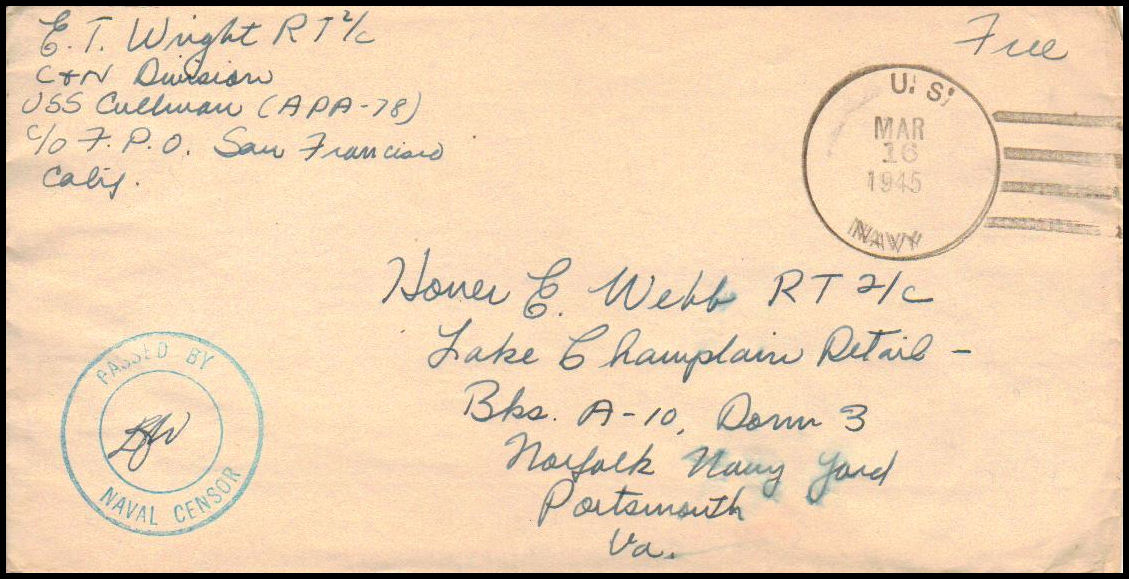 E. T. Wright RT 2/c
C+N Division
USS Cullman (APA-78)
c/o F. P. O. San Francisco
Calif.
Free
U. S.
MAR
16
1945
NAVY
Homer E. Webb RT 2/c
Lake Champlain Detail -
Bks. A-10, Dorm 3
Norfolk Navy Yard
Portsmouth
Va.
PASSED BY
NAVAL CENSOR